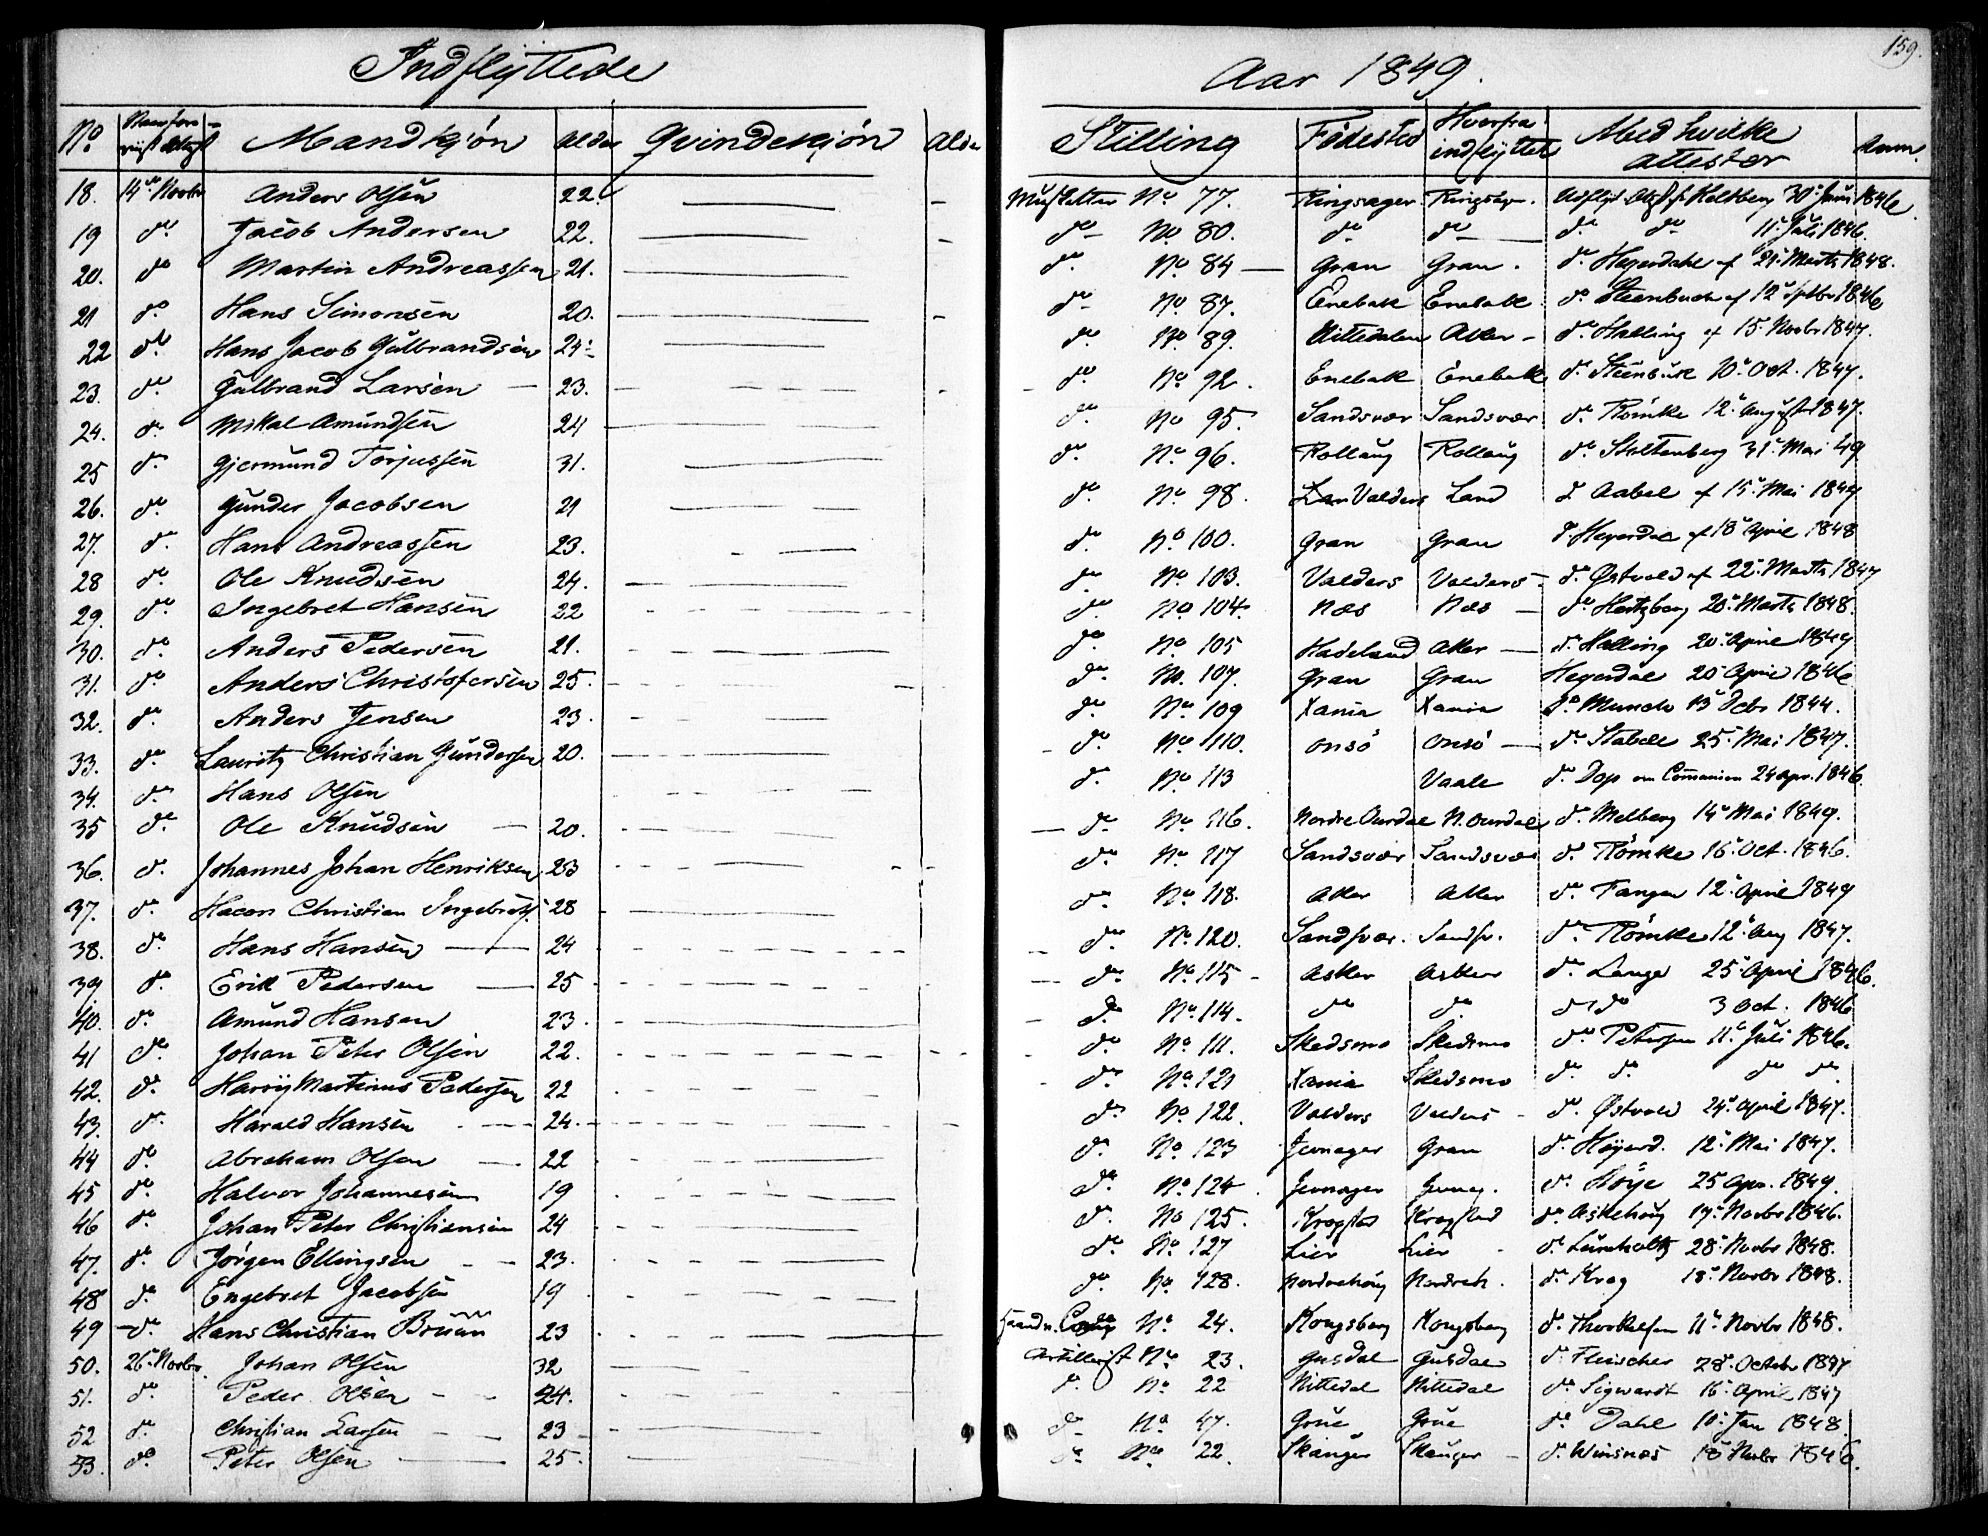 159.
Indflyttede Aar 1849.
No Mandkjön Alder Qvindekjön Alder Stilling Födested Hvorfra indflyttet Med hvilke attester Anm.
18. 14de Novbr Anders Olsen 22. Musketter No 77. Ringsager Ringsag. 30 Juni 1846
19 do Jacob Andersen 22. do No 80. do do do do 11 Juli 1846.
20. do Martin Andreassen 21. do No 84 Gran Gran. do Heyerdahl af 21 Marts 1848.
21 do Hans Simonsen 20. do No 87. Enebak Enebak do Steenbuch af 12 Septbr 1846
22 do Hans Jacob Gulbrandsen 24. do No 89. Nittedalen Aker do Halling af 15 Novbr 1847.
23. do Gulbrand Larsen 23. do No 92. Enebak Enebak do Steenbuch 10 Oct. 1847.
24. do Mikal Amundsen 24 do No 95. Sandsvær Sandsvær do Römke 12 August 1847.
25 do Gjermund Torjussen 31. do No 96. Rollaug Rollaug do Stoltenberg 31 Mai 49
26. do Gunder Jacobsen 21 do No 98. Valders Land do Aabel af 15 Mai 1849
27. do Hans Andreassen 23. do No 100. Gran Gran do Heyerdal af 18 April 1848
28 do Ole Knudsen 24. do No 103. Valders Valders do Østvold af 22 Marts 1847
29. do Ingebret Hansen 22 do No 104. Næs Næs do Hertzberg 20 Marts 1848.
30. do Anders Pedersen 21. do No 105 Hadeland Aker do Halling 20 April 1849
31. do Anders Christofersen 25. do No 107. Gran Gran Heyerdal 20 April 1846
32. do Anders Jensen 23. do No 109 Xania Xania do Munch 13 Octbr 1844.
33. do Lauritz Christian Gundersen 20. do No 110. Onsö Onsö do Stabell 25 Mai 1847.
34. do Hans Olsen do No 113 Vaale do Dop om Communion 24 Apr. 1846
35 do Ole Knudsen 20. do No 116. Nordre Ourdal N. Ourdal do Melberg 14 Mai 1849.
36. do Johannes Johan Henriksen 23 do No 117 Sandsvær Sandsvær do Römke 16 Oct. 1846.
37. do Hacon Christian Ingebrets. 28 do No 118. Aker Aker do Fangen 12 April 1849
38. do Hans Hansen 24 do No 120. Sandsvær. Sandsv. do Römke 12 Aug 1847.
39. do Erik Pedersen 25 do No 115 Asker Asker do Lange 25 April 1846.
40. do Amund Hansen 23. do No 114. do do do do 3 Oct. 1846
41 do Johan Peter Olsen 22. do No 111. Skedsmo Skedsmo do Petersen 11 Juli 1846.
42. do Harry Martinus Pedersen 22 do No 121 Xania Skedsmo do do do do
43. do Harald Hansen 24. do No 122. Valders Valders do Østvold 24 April 1847.
44 do Abraham Olsen 22 do No 123 Jevnager Gran do Heyerd. 12 Mai 1847.
45 do Halvor Johannesen 19 do No 124 Jevnager Jevnag. do Höye 25 Apr. 1849.
46 do Johan Peter Christiansen 24 do No 125. Krogstad Krogstad do Askehoug 17 Novbr 1846.
47. do Jörgen Ellingsen 23. do No 127 Lier Lier do 28 Novbr 1848.
48 do Engebret Jacobsen 19 do No 128. Nordrehoug Nordreh. do Krag 18 Novbr 1848.
49 do Hans Christian Bruun 23 No 24. Kongsberg Kongsberg do Thorkelsen 11 Novbr 1848.
50. 26 Novbr. Johan Olsen 32 Artillerist No 23. Gusdal Gusdal do Fleischer 28 October 1847
51. do Peder Olsen 24. do No 22 Nittedal Nittedal do Sigwardt 16 April 1847
52 do Christian Larsen 23 do No 47. Grue Grue do Dahl 10 Jan 1848.
53. do Peter Olsen 25. do No 22. Skauger Skauger do Winsnes 18 Novbr 1846.